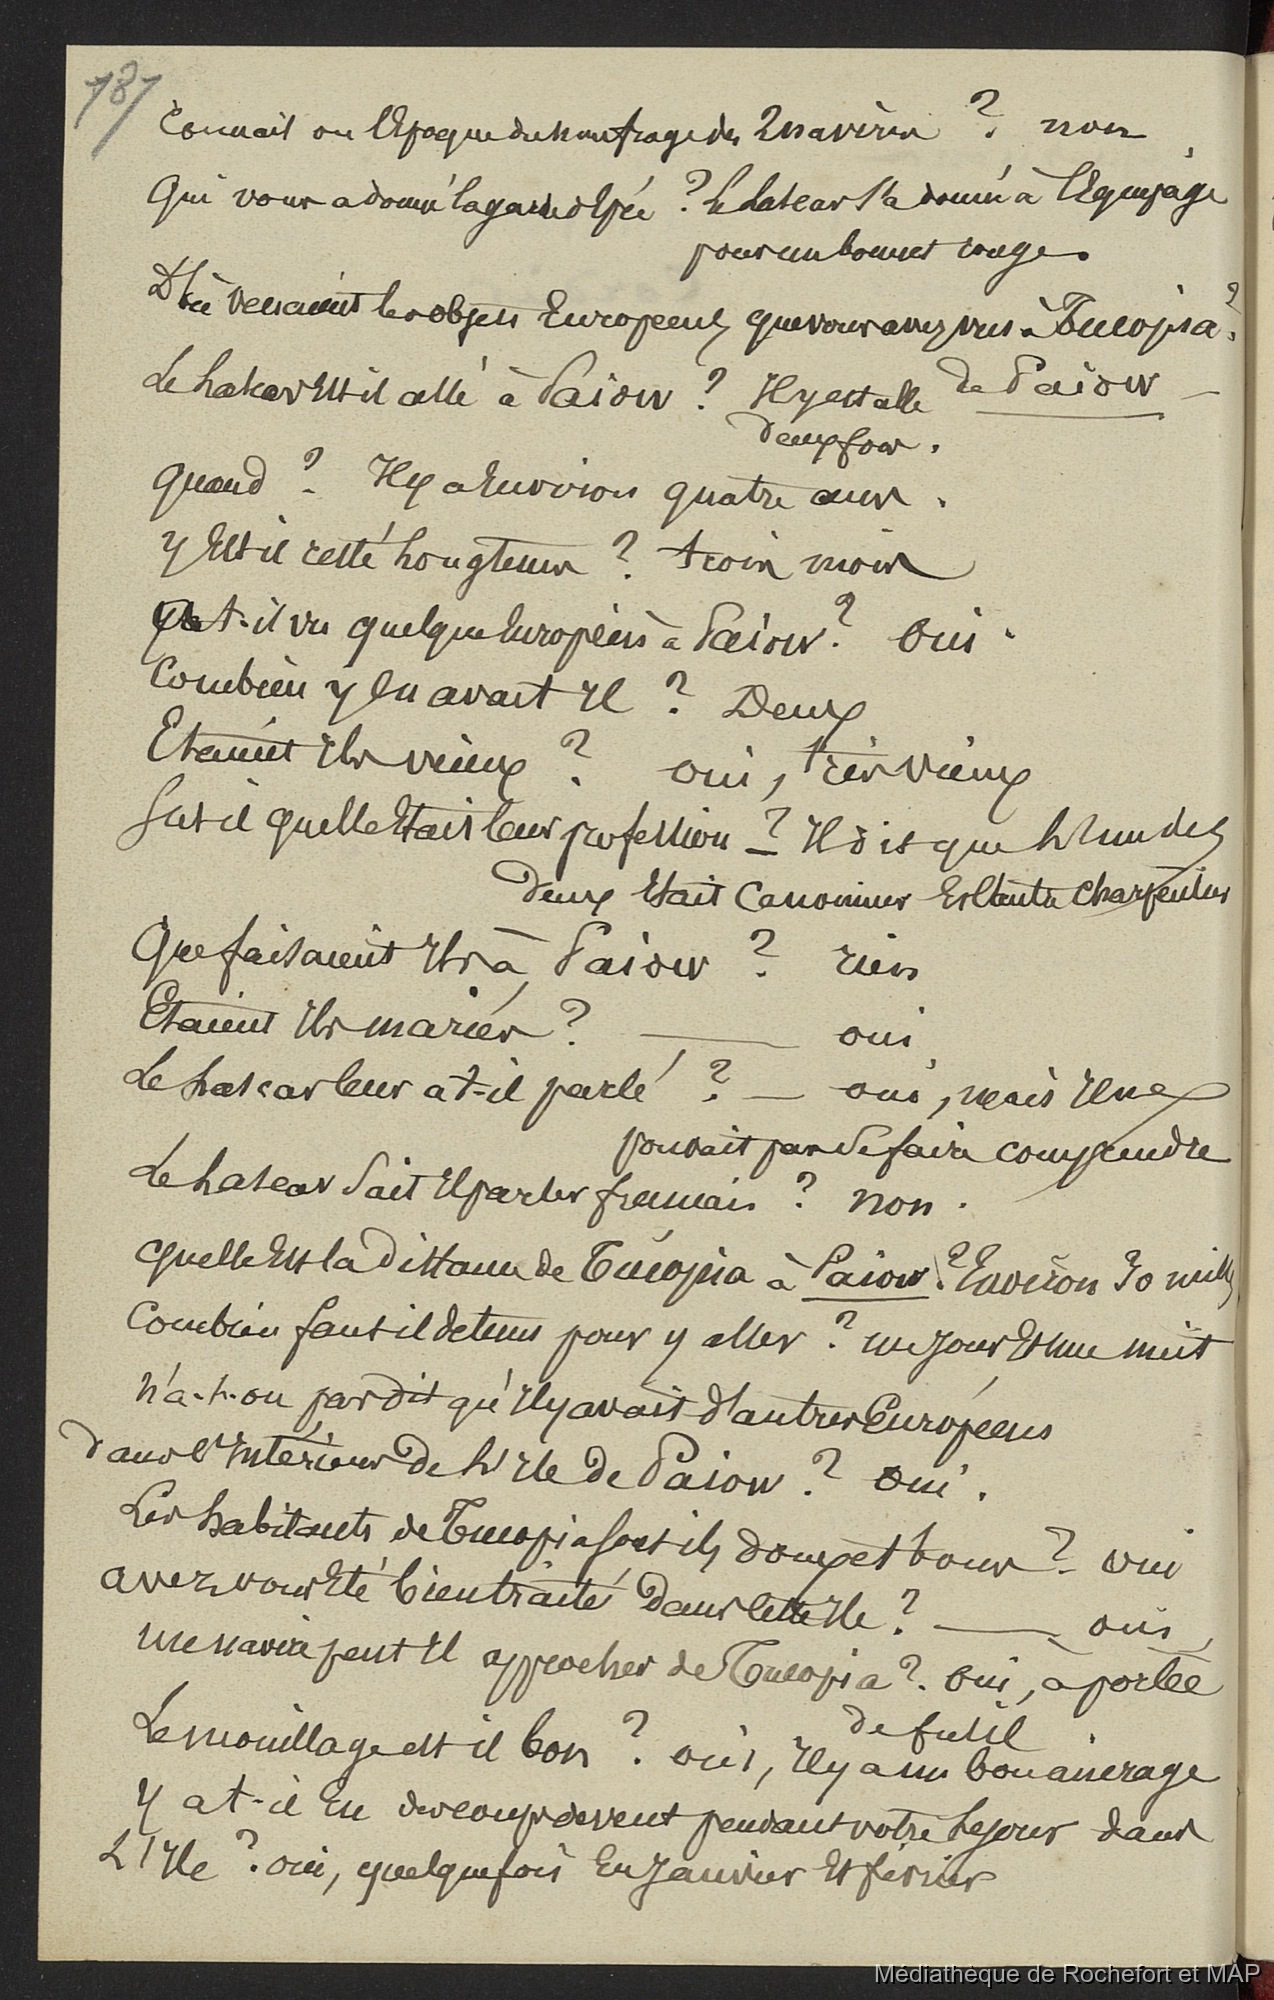 787
Connait on l'Epoque du naufrage des 2 navires ? non
Qui vous a donné la garde d'Epée ? Le Lascar l'a donné à l'Equipage
pour un bonnet rouge.
D'où venaient les objets Européens que vous avez vus à Tucopia ?
de Païow
Le Lascar Est il allé à Païow ? Il y est allé
deux fois.
quand ? Il y a Environ quatre ans.
y Est il resté Longtems ? trois mois
a-t-il vu quelque Européens à Païow ? Oui.
Combien y En avait Il ? Deux
Etaient Ils vieux ? oui, très vieux
Sait il quelle Etait leur profession ? Il dit que L'un des
deux Etait Canonnier Et l'autre charpentier
Que faisaient Ils à Païow ? rien
Etaient Ils mariés ? — oui,
Le Lascar leur a t-il parlé ? — oui, mais Il ne
pouvait pas Se faire comprendre
Le Lascar Sait Il parler francais ? non.
quelle Est la Distance de Tucopia à Païow ? Environ 70 milles
Combien faut il de tems pour y aller ? un jour Et une nuit
n'a-t-on pas dit qu'Il y avait d'autres Européens
dans l'Intérieur De L'Ile De Païow ? Oui.
Les habitants de Tucopia Sont ils doux et bons ? oui
avez vous Eté bien traité Dans cette Ile ? — oui,
un navire peut Il approcher de Tucopia ? Oui, à portée
de fusil
Le mouillage est il bon ? oui, Il y a un bon ancrage
Y a t-il Eu des coups de vent pendant votre Séjour dans
L'Ile ? oui, quelquefois En Janvier Et février
Médiathèque de Rochefort et MAP